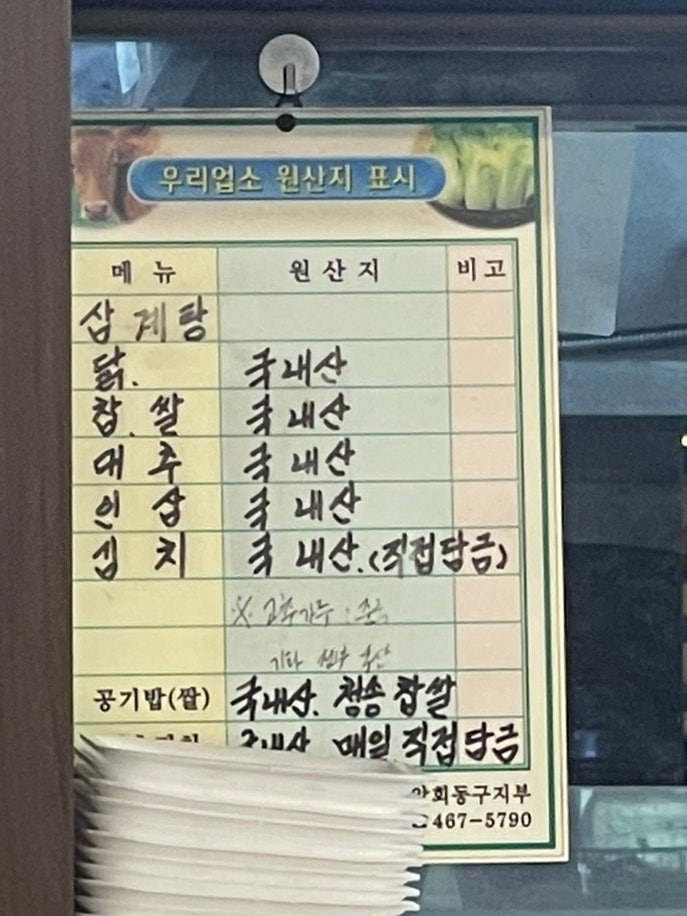 우리업소 원산지 표시
메뉴 원산지 비고
삼계탕
닭. 국내산
찹.쌀 국내산
대추 국내산
인삼 국내산
김치 국내산.(직접담금)
※ 고추가루 : 중국
기타 전부 국산
공기밥(쌀) 국내산. 청송 찹쌀
국내산. 매일 직접담금
회동구지부
467-5790